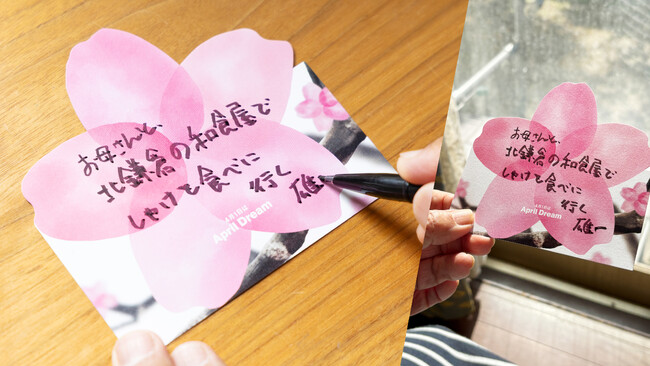 お母さんと、
北鎌倉の和食屋で
しゃけを食べに
行く
雄一
April Dream
お母さんと、
北鎌倉の和食屋で
しゃけを食べに
行く
雄一
April Dream